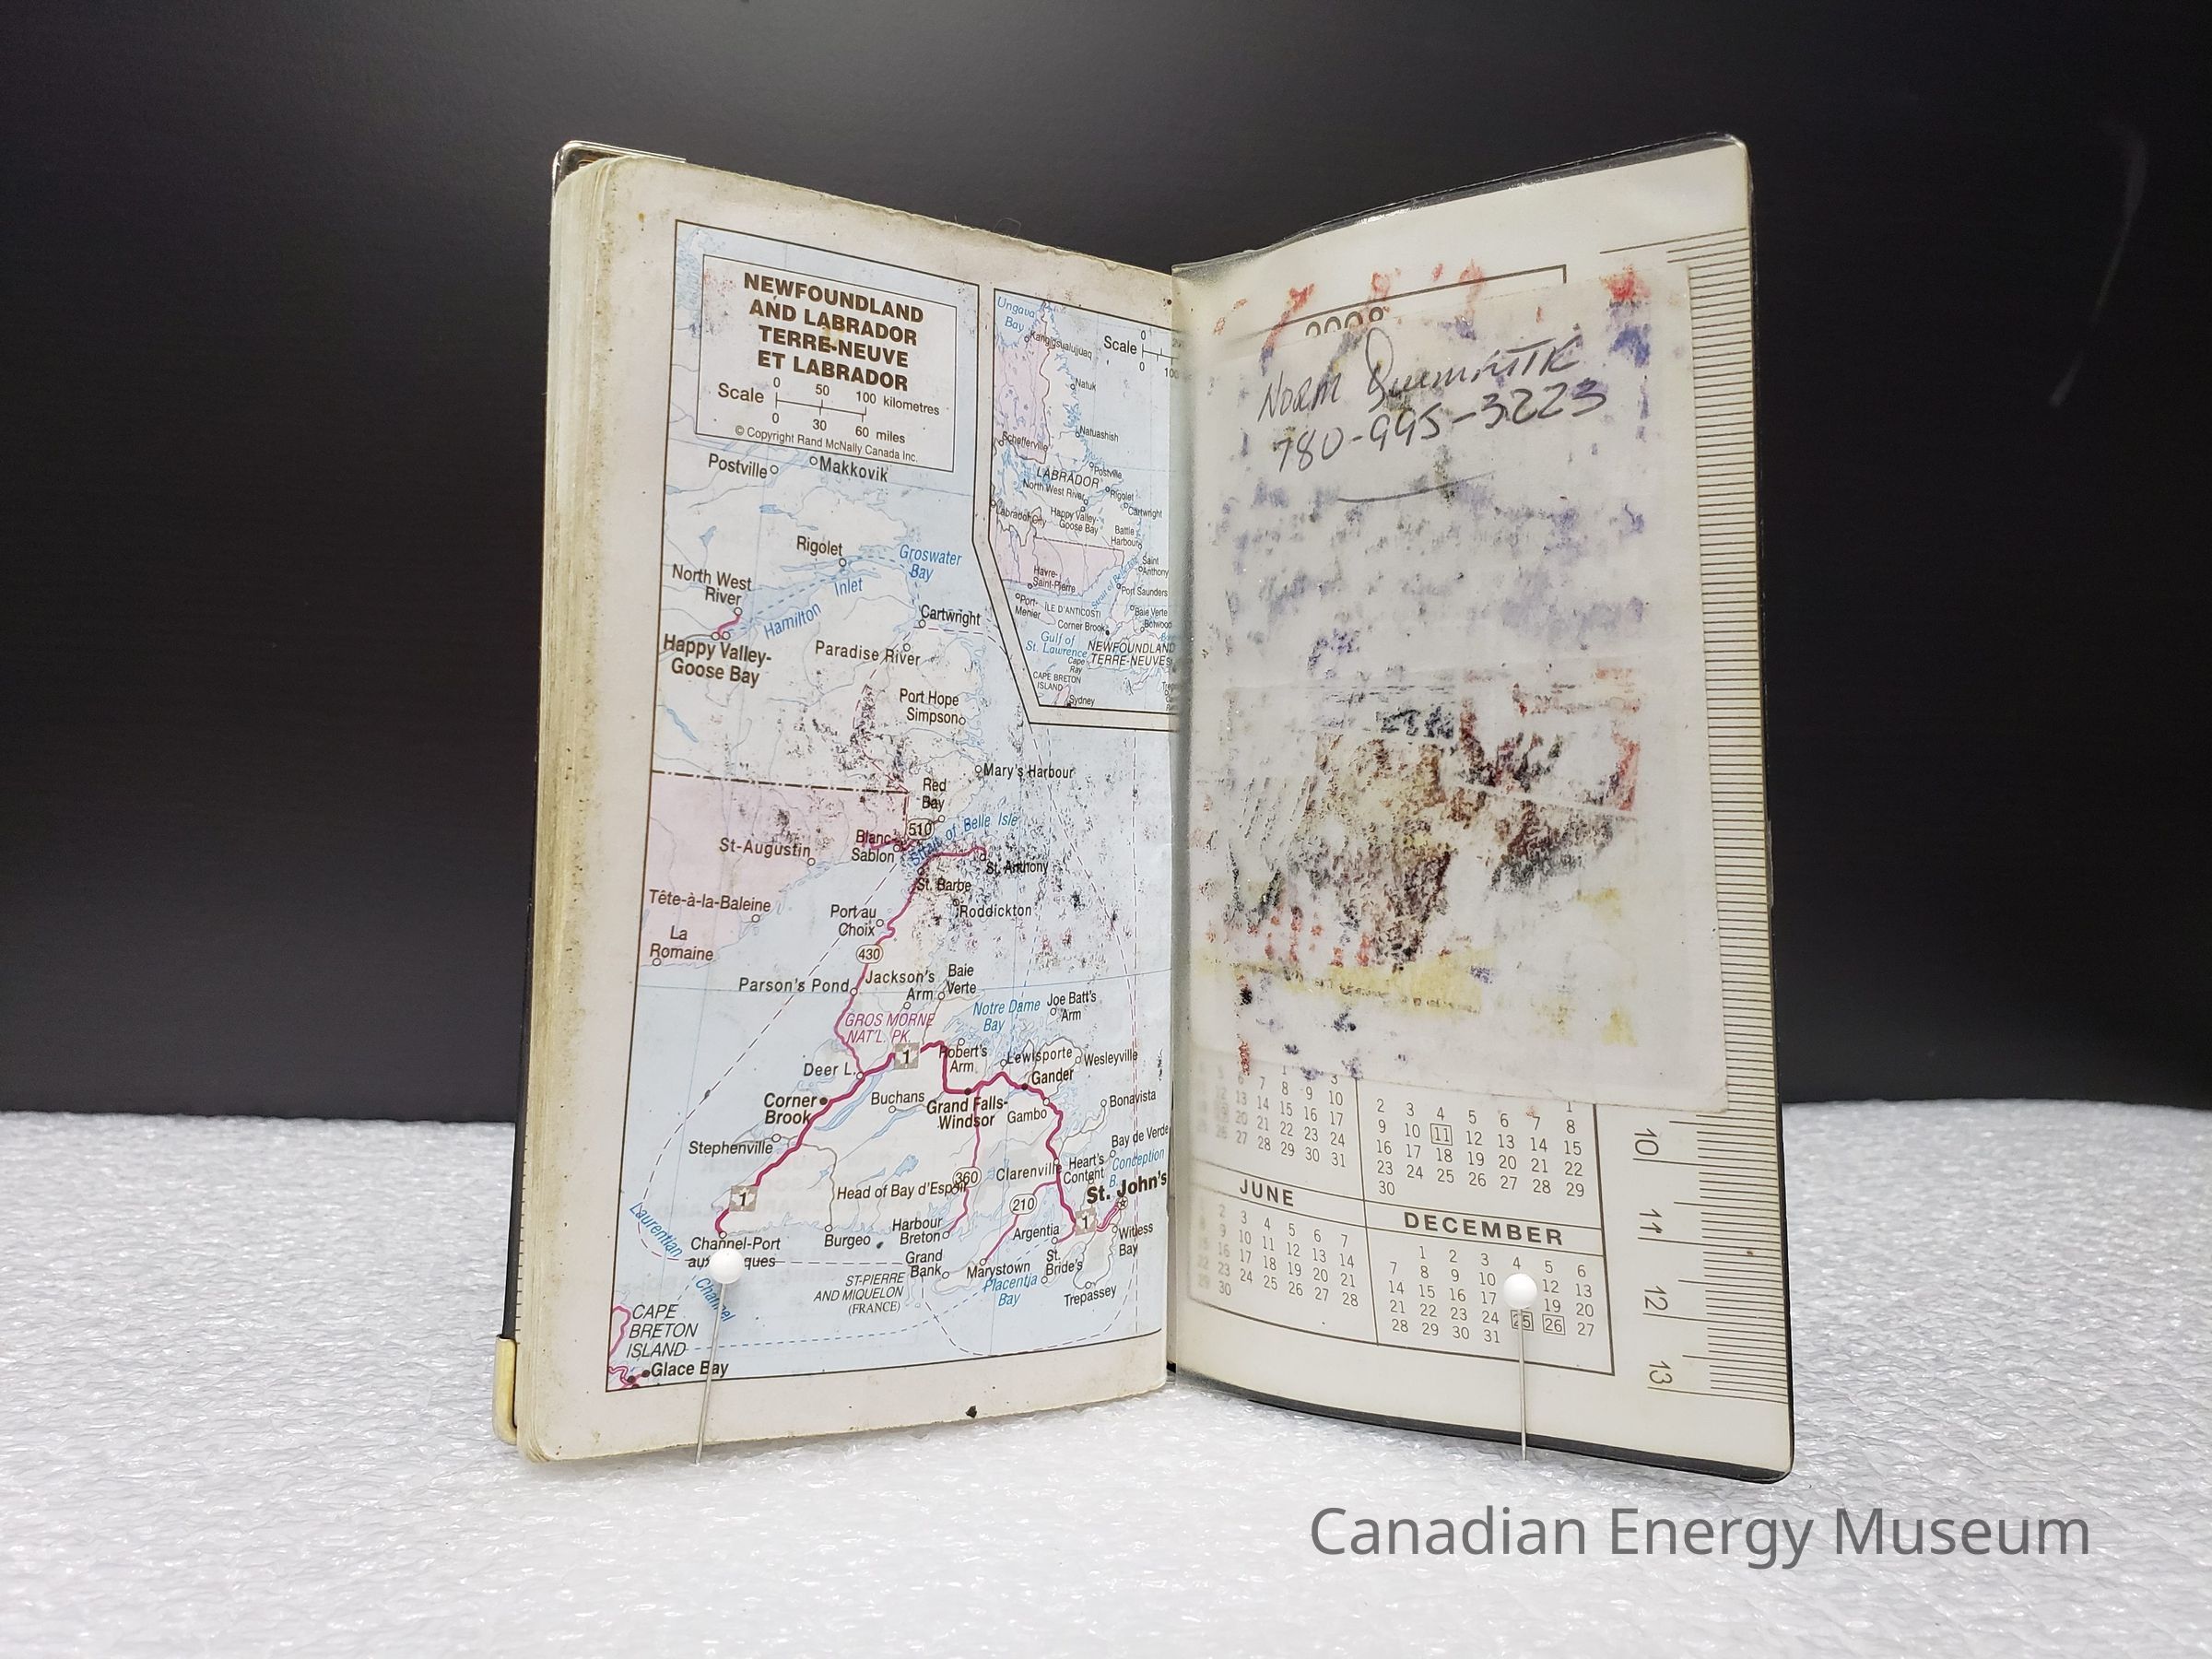 NEWFOUNDLAND
AND LABRADOR
TERRE-NEUVE
ET LABRADOR
Scale
0 50 100 kilometres
0 30 60 miles
© Copyright Rand McNally Canada Inc.
Postville
Makkovik
Rigolet
Groswater
Bay
North West
River
Hamilton Inlet
Cartwright
Happy Valley-
Goose Bay
Paradise River
Port Hope
Simpson
Mary's Harbour
Red
Bay
510
Strait of Belle Isle
Blanc-
Sablon
St-Augustin
St. Anthony
St. Barbe
Tête-à-la-Baleine
Port au
Choix
Roddickton
La
Romaine
430
Parson's Pond
Jackson's
Arm
Baie
Verte
Notre Dame
Bay
Joe Batt's
Arm
GROS MORNE
NAT'L. PK.
1
Robert's
Arm
Lewisporte
Wesleyville
Deer L.
Gander
Corner
Brook
Buchans
Grand Falls-
Windsor
Gambo
Bonavista
Stephenville
Bay de Verde
Clarenville
Heart's
Content
Conception
B.
360
Head of Bay d'Espoir
St. John's
1
210
1
Laurentian
Channel
Harbour
Breton
Argentia
Witless
Bay
Channel-Port
aux ques
Burgeo
Grand
Bank
Marystown
St.
Bride's
ST-PIERRE
AND MIQUELON
(FRANCE)
Placentia
Bay
Trepassey
CAPE
BRETON
ISLAND
Glace Bay
Ungava
Bay
Scale
0
0 100
Kangiqsualujjuaq
Natuk
Natuashish
Schefferville
Postville
LABRADOR
North West River
Rigolet
Cartwright
Labrador City
Happy Valley-
Goose Bay
Battle
Harbour
Saint
Anthony
Havre-
Saint-Pierre
Port Saunders
Port-
Menier
ÎLE D'ANTICOSTI
Baie Verte
Corner Brook
Botwood
Gulf of
St. Lawrence
NEWFOUNDLAND
TERRE-NEUVE
Cape
Ray
CAPE BRETON
ISLAND
Sydney
2008
NORM
780-995-3223
1 3
7 8 9 10
12 13 14 15 16 17
19 20 21 22 23 24
26 27 28 29 30 31
1
2 3 4 5 6 7 8
9 10 11 12 13 14 15
16 17 18 19 20 21 22
23 24 25 26 27 28 29
30
JUNE
2 3 4 5 6 7
9 10 11 12 13 14
16 17 18 19 20 21
23 24 25 26 27 28
30
DECEMBER
1 2 3 4 5 6
7 8 9 10 12 13
14 15 16 17 19 20
21 22 23 24 25 26 27
28 29 30 31
10
11
12
13
Canadian Energy Museum